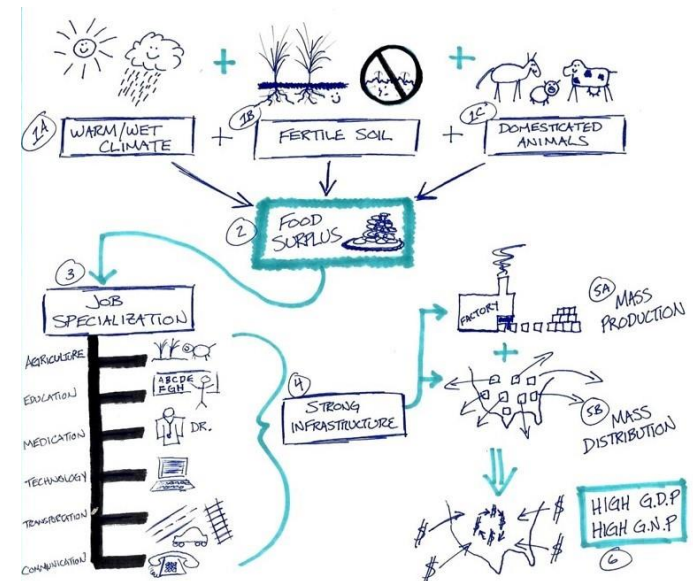 1A
WARM/WET
CLIMATE
+
1B
FERTILE SOIL
+
1C
DOMESTICATED
ANIMALS
2
FOOD
SURPLUS
3
JOB
SPECIALIZATION
AGRICULTURE
EDUCATION
ABCDE
FGH
MEDICATION
DR.
TECHNOLOGY
TRANSPORTATION
COMMUNICATION
4
STRONG
INFRASTRUCTURE
FACTORY
5A
MASS
PRODUCTION
+
5B
MASS
DISTRIBUTION
$ $ $ $
HIGH G.D.P
HIGH G.N.P
6